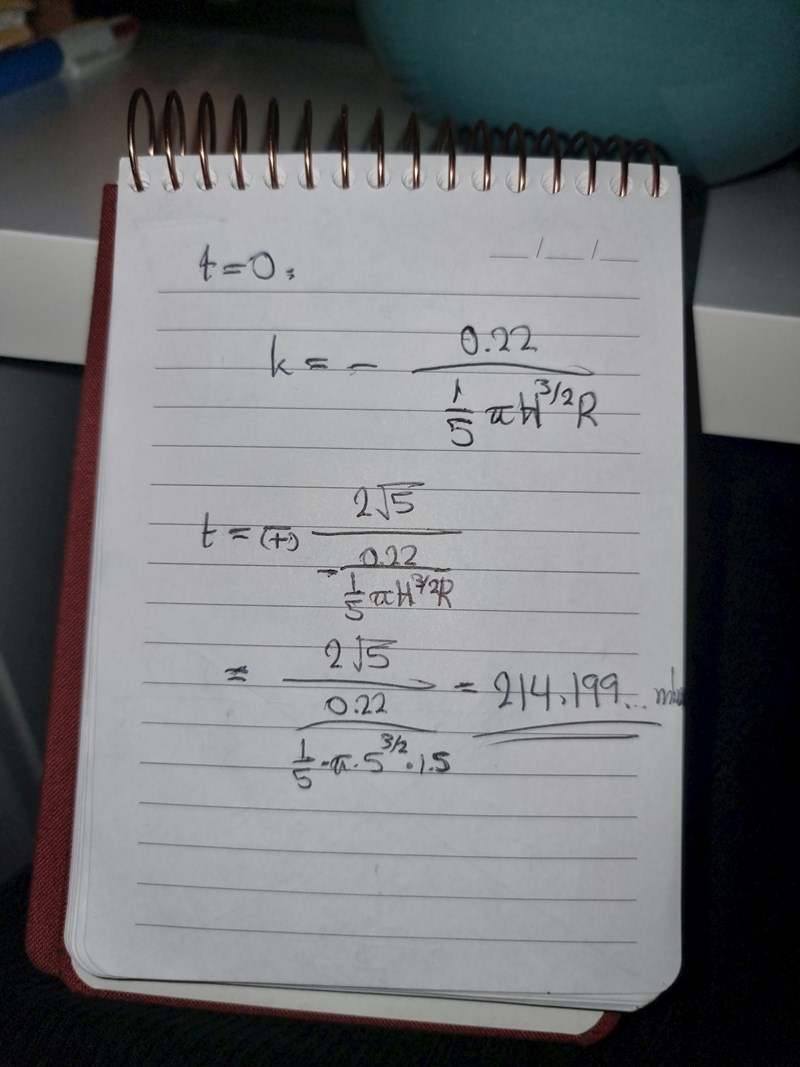 __/__/__
t=0:
k = - 0.22 / (1/5 πH^3/2 R)
t = (+) 2√5 / (- 0.22 / (1/5 πH^3/2 R))
= 2√5 / (0.22 / (1/5 · π · 5^3/2 · 1.5)) = 214.199...